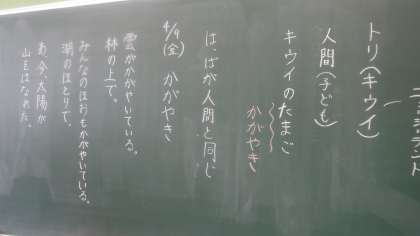 トリ(キウイ)
人間(子ども)
キウイのたまご
かがやき
はっぱが人間と同じ
4/9(金) かがやき
雲がかがやいている。
林の上で。
みんなのほおもかがやいている。
湖のほとりで。
あ、今、太陽が
山をはなれた。